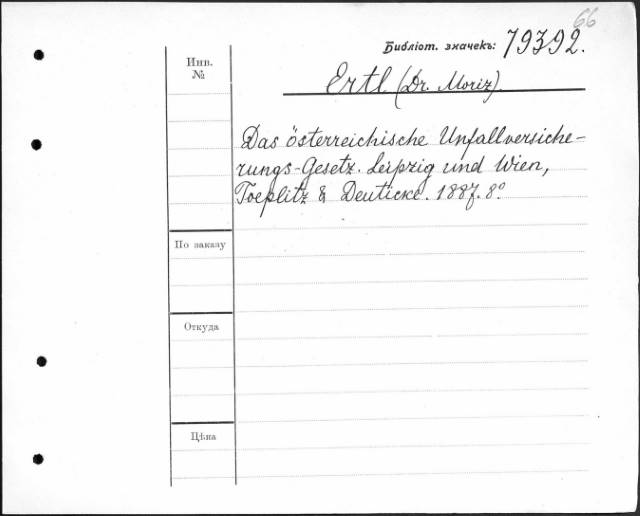 66
Библіот. значекъ: 79392.
Инв.
№
Ertl (Dr. Moriz).
Das österreichische Unfallversiche-
rungs-Gesetz. Leipzig und Wien,
Toeplitz & Deuticke. 1887. 8°.
По заказу
Откуда
Цѣна